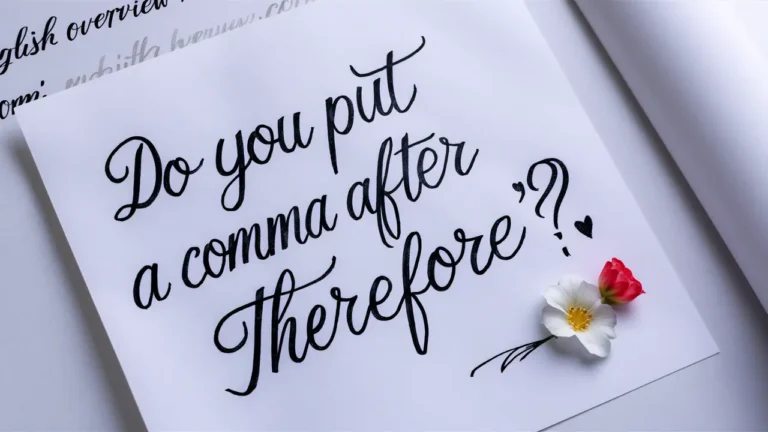 glish overview
Do you put
a comma after
Therefore’?